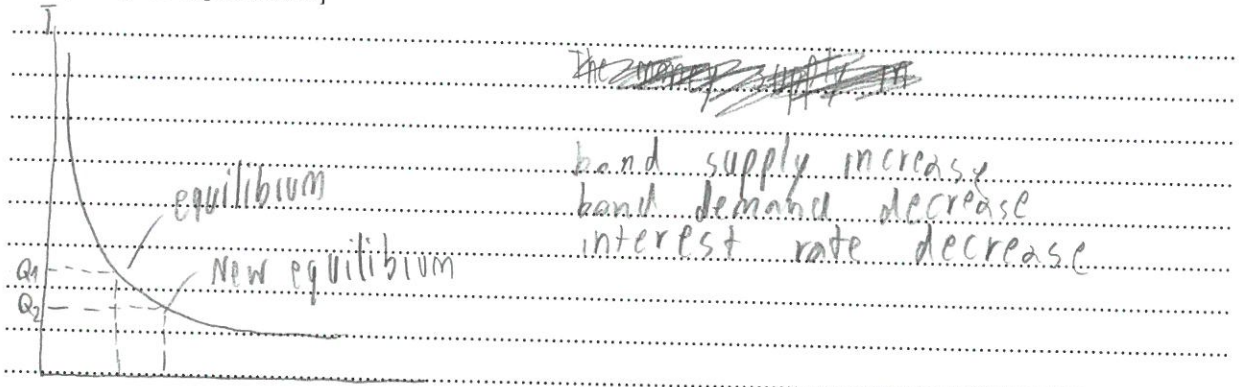 I
The money supply in
bond supply increase
bond demand decrease
interest rate decrease
equilibium
New equilibium
Q1
Q2